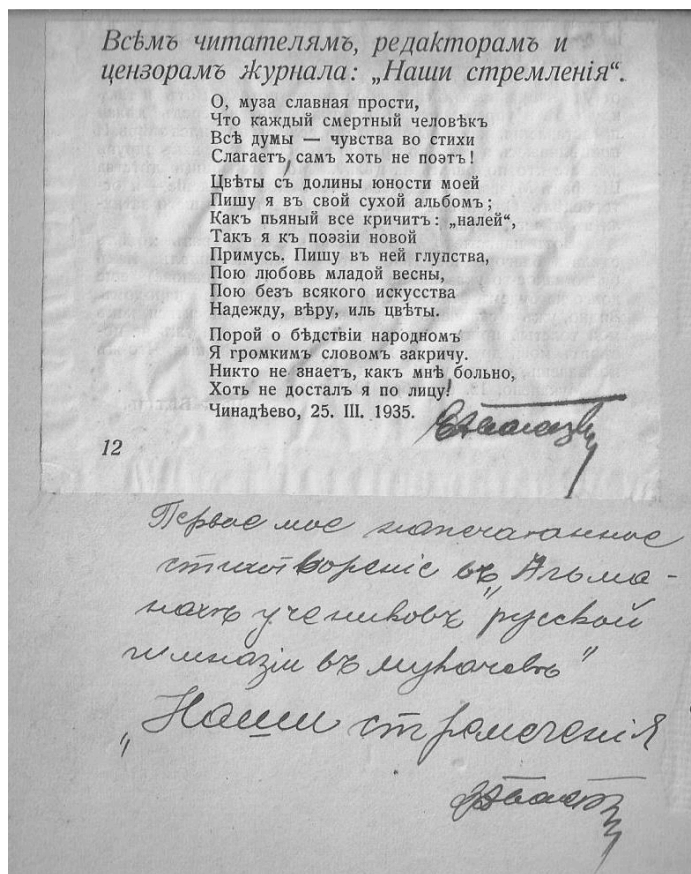 Всѣмъ читателямъ, редакторамъ и
цензорамъ журнала: „Наши стремленія“.
О, муза славная прости,
Что каждый смертный человѣкъ
Всѣ думы — чувства во стихи
Слагаетъ, самъ хоть не поэтъ!
Цвѣты съ долины юности моей
Пишу я въ свой сухой альбомъ;
Какъ пьяный все кричитъ: „налей“,
Такъ я къ поэзіи новой
Примусь. Пишу въ ней глупства,
Пою любовь младой весны,
Пою безъ всякого искусства
Надежду, вѣру, иль цвѣты.
Порой о бѣдствіи народномъ
Я громкимъ словомъ закричу.
Никто не знаетъ, какъ мнѣ больно,
Хоть не досталъ я по лицу!
Чинадѣево, 25. III. 1935.
12
Первое мое напечатанное
стихотвореніе въ „Альма-
нахѣ учениковъ русской
гимназіи въ мукачевѣ”
„Наши стремленія